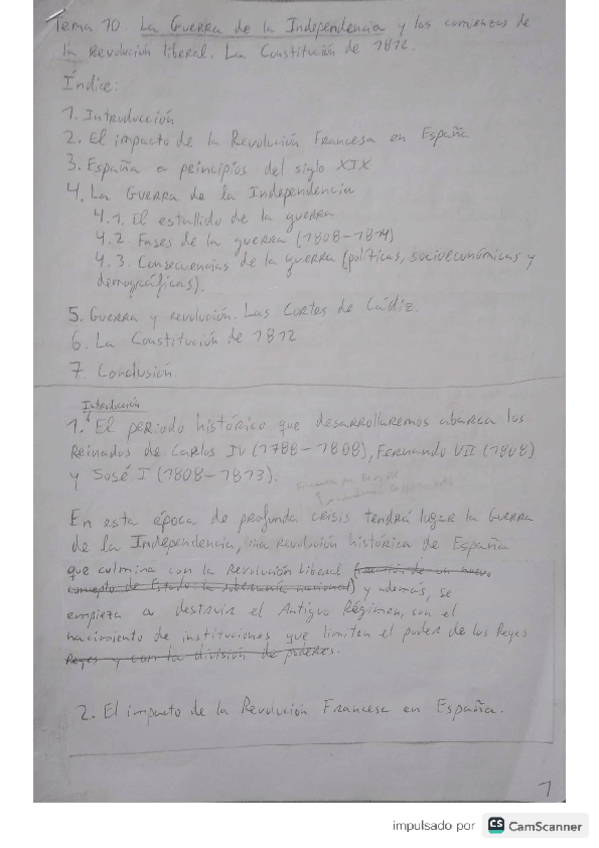 Tema 10. La Guerra de la Independencia y los comienzos de
la revolución liberal. La Constitución de 1812.
Índice:
1. Introducción
2. El impacto de la Revolución Francesa en España
3. España a principios del siglo XIX
4. La Guerra de la Independencia
4.1. El estallido de la guerra
4.2. Fases de la guerra (1808-1814)
4.3. Consecuencias de la guerra (políticas, socioeconómicas y
demográficas).
5. Guerra y revolución. Las Cortes de Cádiz.
6. La Constitución de 1812
7. Conclusión
Introducción
1. El periodo histórico que desarrollaremos abarca los
Reinados de Carlos IV (1788-1808), Fernando VII (1808)
y José I (1808-1813).
En esta época de profunda crisis tendrá lugar la Guerra
de la Independencia, una revolución histórica de España
que culmina con la Revolución Liberal (creación de un nuevo
concepto de Estado: la soberanía nacional) y además, se
empieza a destruir el Antiguo Régimen, con el
nacimiento de instituciones que limiten el poder de los Reyes
Reyes y con la división de poderes.
2. El impacto de la Revolución Francesa en España.
1
impulsado por CS CamScanner